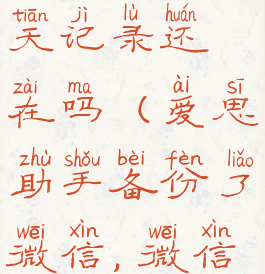 tiān jì lù huán
天记录还
zài ma ài sī
在吗（爱思
zhù shǒu bèi fèn liǎo
助手备份了
wēi xìn wēi xìn
微信，微信